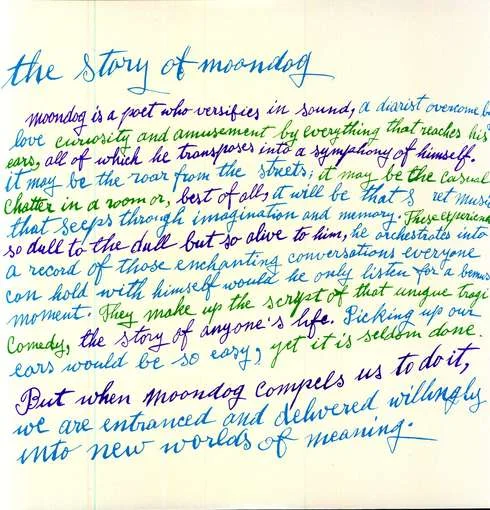 the story of moondog
moondog is a poet who versifies in sound, a diarist overcome b
love curiosity and amusement by everything that reaches his
ears, all of which he transposes into a symphony of himself.
it may be the roar from the streets; it may be the casual
chatter in a room or, best of all, it will be that s ret musi
that seeps through imagination and memory. These experienc
so dull to the dull but so alive to him, he orchestrates into
a record of those enchanting conversations everyone
can hold with himself would he only listen for a bemus
moment. They make up the script of that unique tragi
comedy, the story of anyone's life. Picking up our
ears would be so easy, yet it is seldom done.
But when moondog compels us to do it,
we are entranced and delivered willingly
into new worlds of meaning.